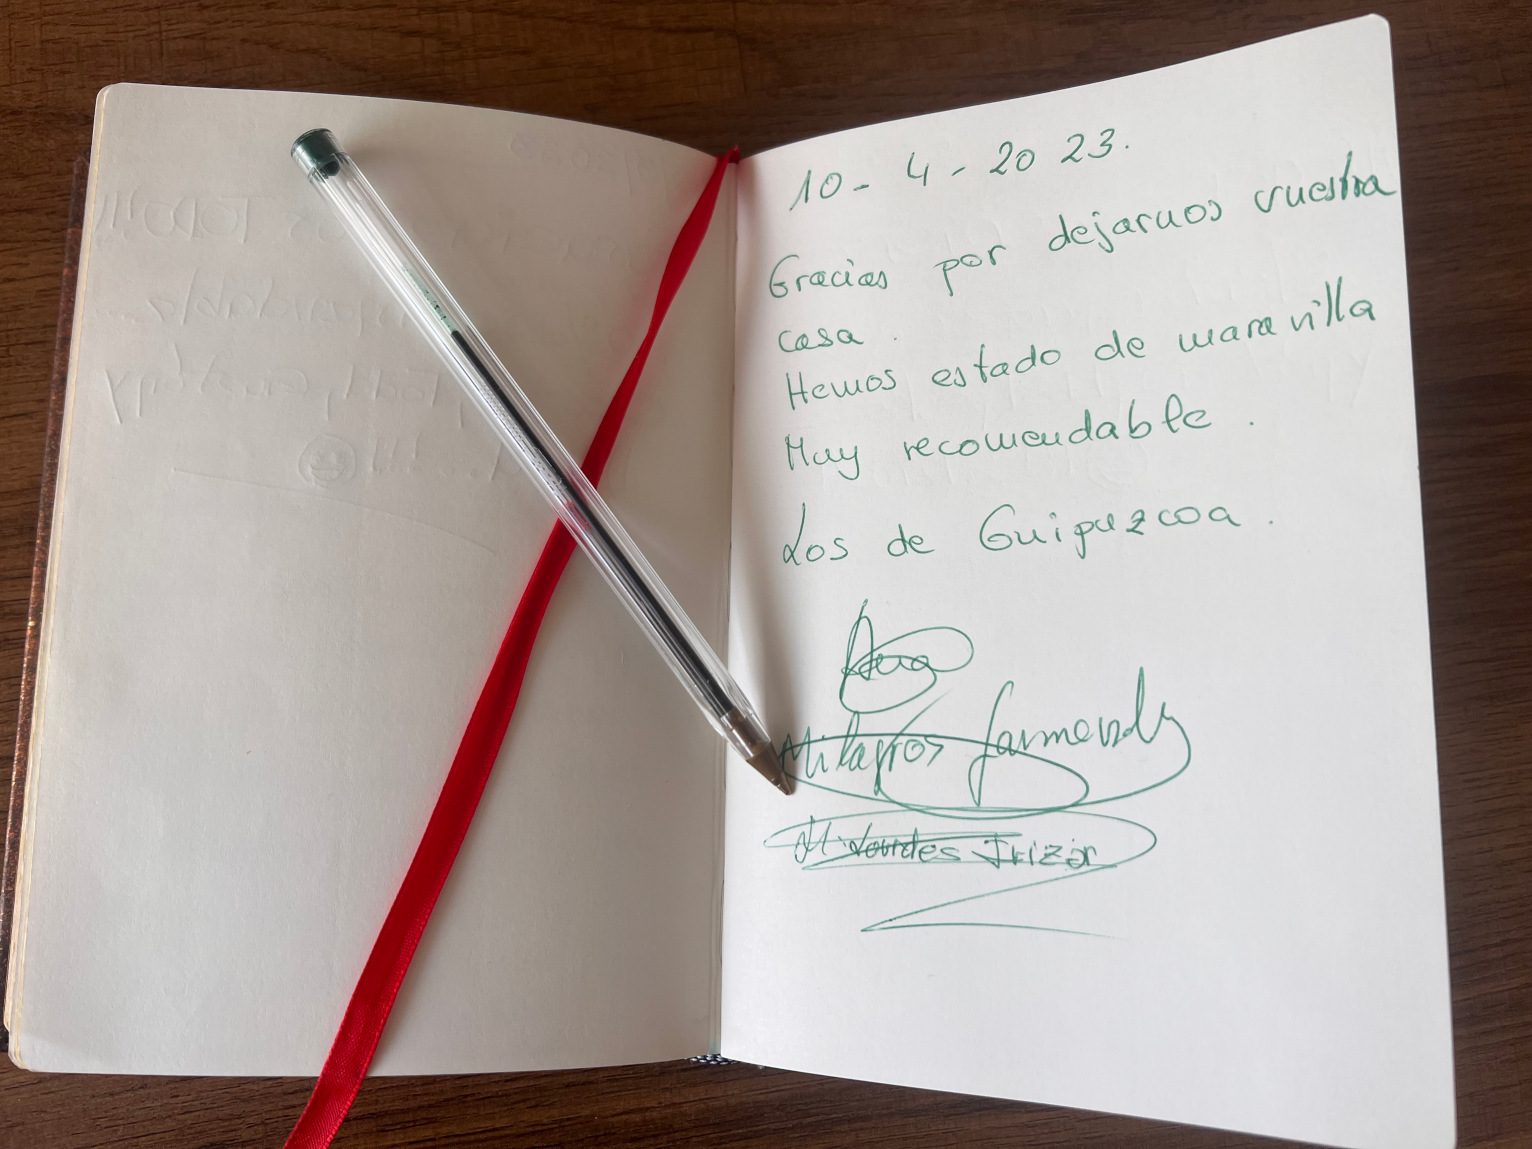 10 - 4 - 20 23.
Gracias por dejarnos vuestra
casa.
Hemos estado de maravilla
Muy recomendable.
Los de Guipuzcoa.
Milagros Garmendia
Mº Lourdes Irizar